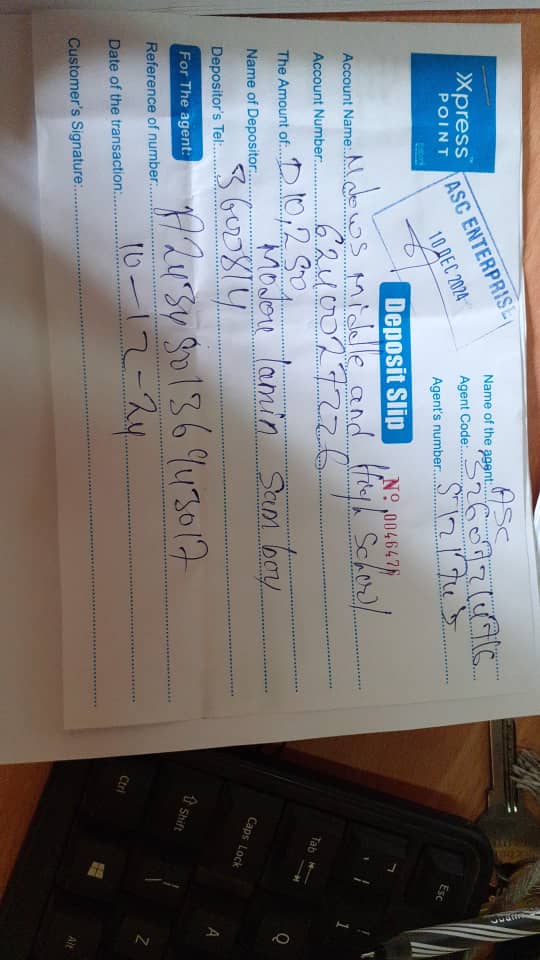 Xpress™
POINT
ASC ENTERPRISE
10 DEC 2024
Name of the agent: ASC
Agent Code:
Agent's number:
Deposit Slip
Nº 0046478
Account Name: middle and High School
Account Number: 6240027226
The Amount of: D10,250
Name of Depositor: Modou lamin Samboy
Depositor's Tel: 3600814
For The agent:
Reference of number:
Date of the transaction: 10-12-24
Customer's Signature:
Esc
!
1
Tab
Q
Caps Lock
A
Shift
|
\
Z
Ctrl
Alt